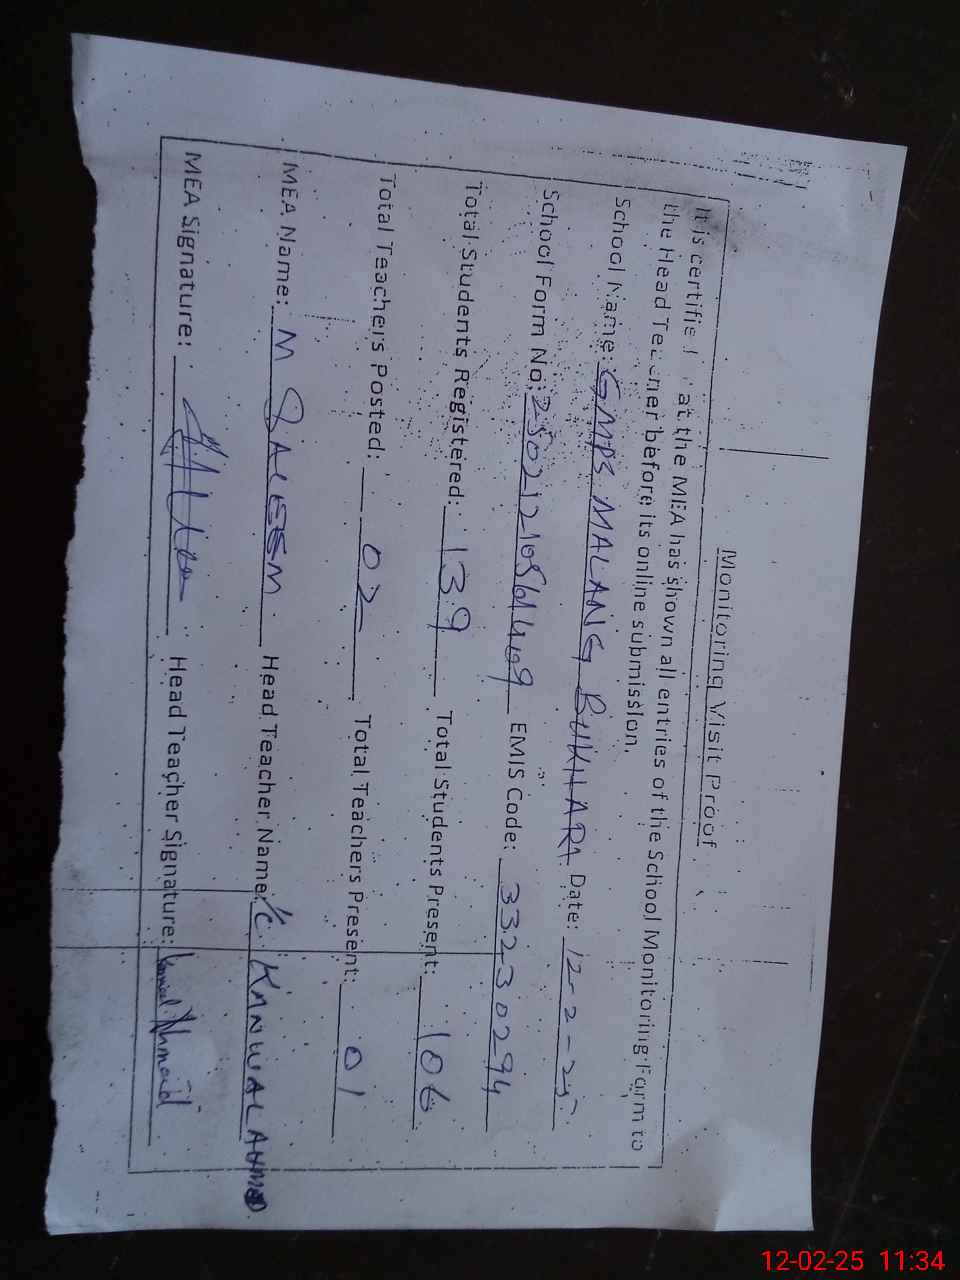 Monitoring Visit Proof
It is certified at the MEA has shown all entries of the School Monitoring Form to
the Head Teacher before its online submission.
School Name: GMPS MALANG BUKHARA Date: 12-2-25
School Form No: EMIS Code: 33230294
Total Students Registered: 139 Total Students Present: 106
Total Teachers Posted: 02 Total Teachers Present: 01
MEA Name: M SALEEM Head Teacher Name: I/C KANWAL AHMAD
MEA Signature: Head Teacher Signature: Kanwal Ahmad
12-02-25 11:34